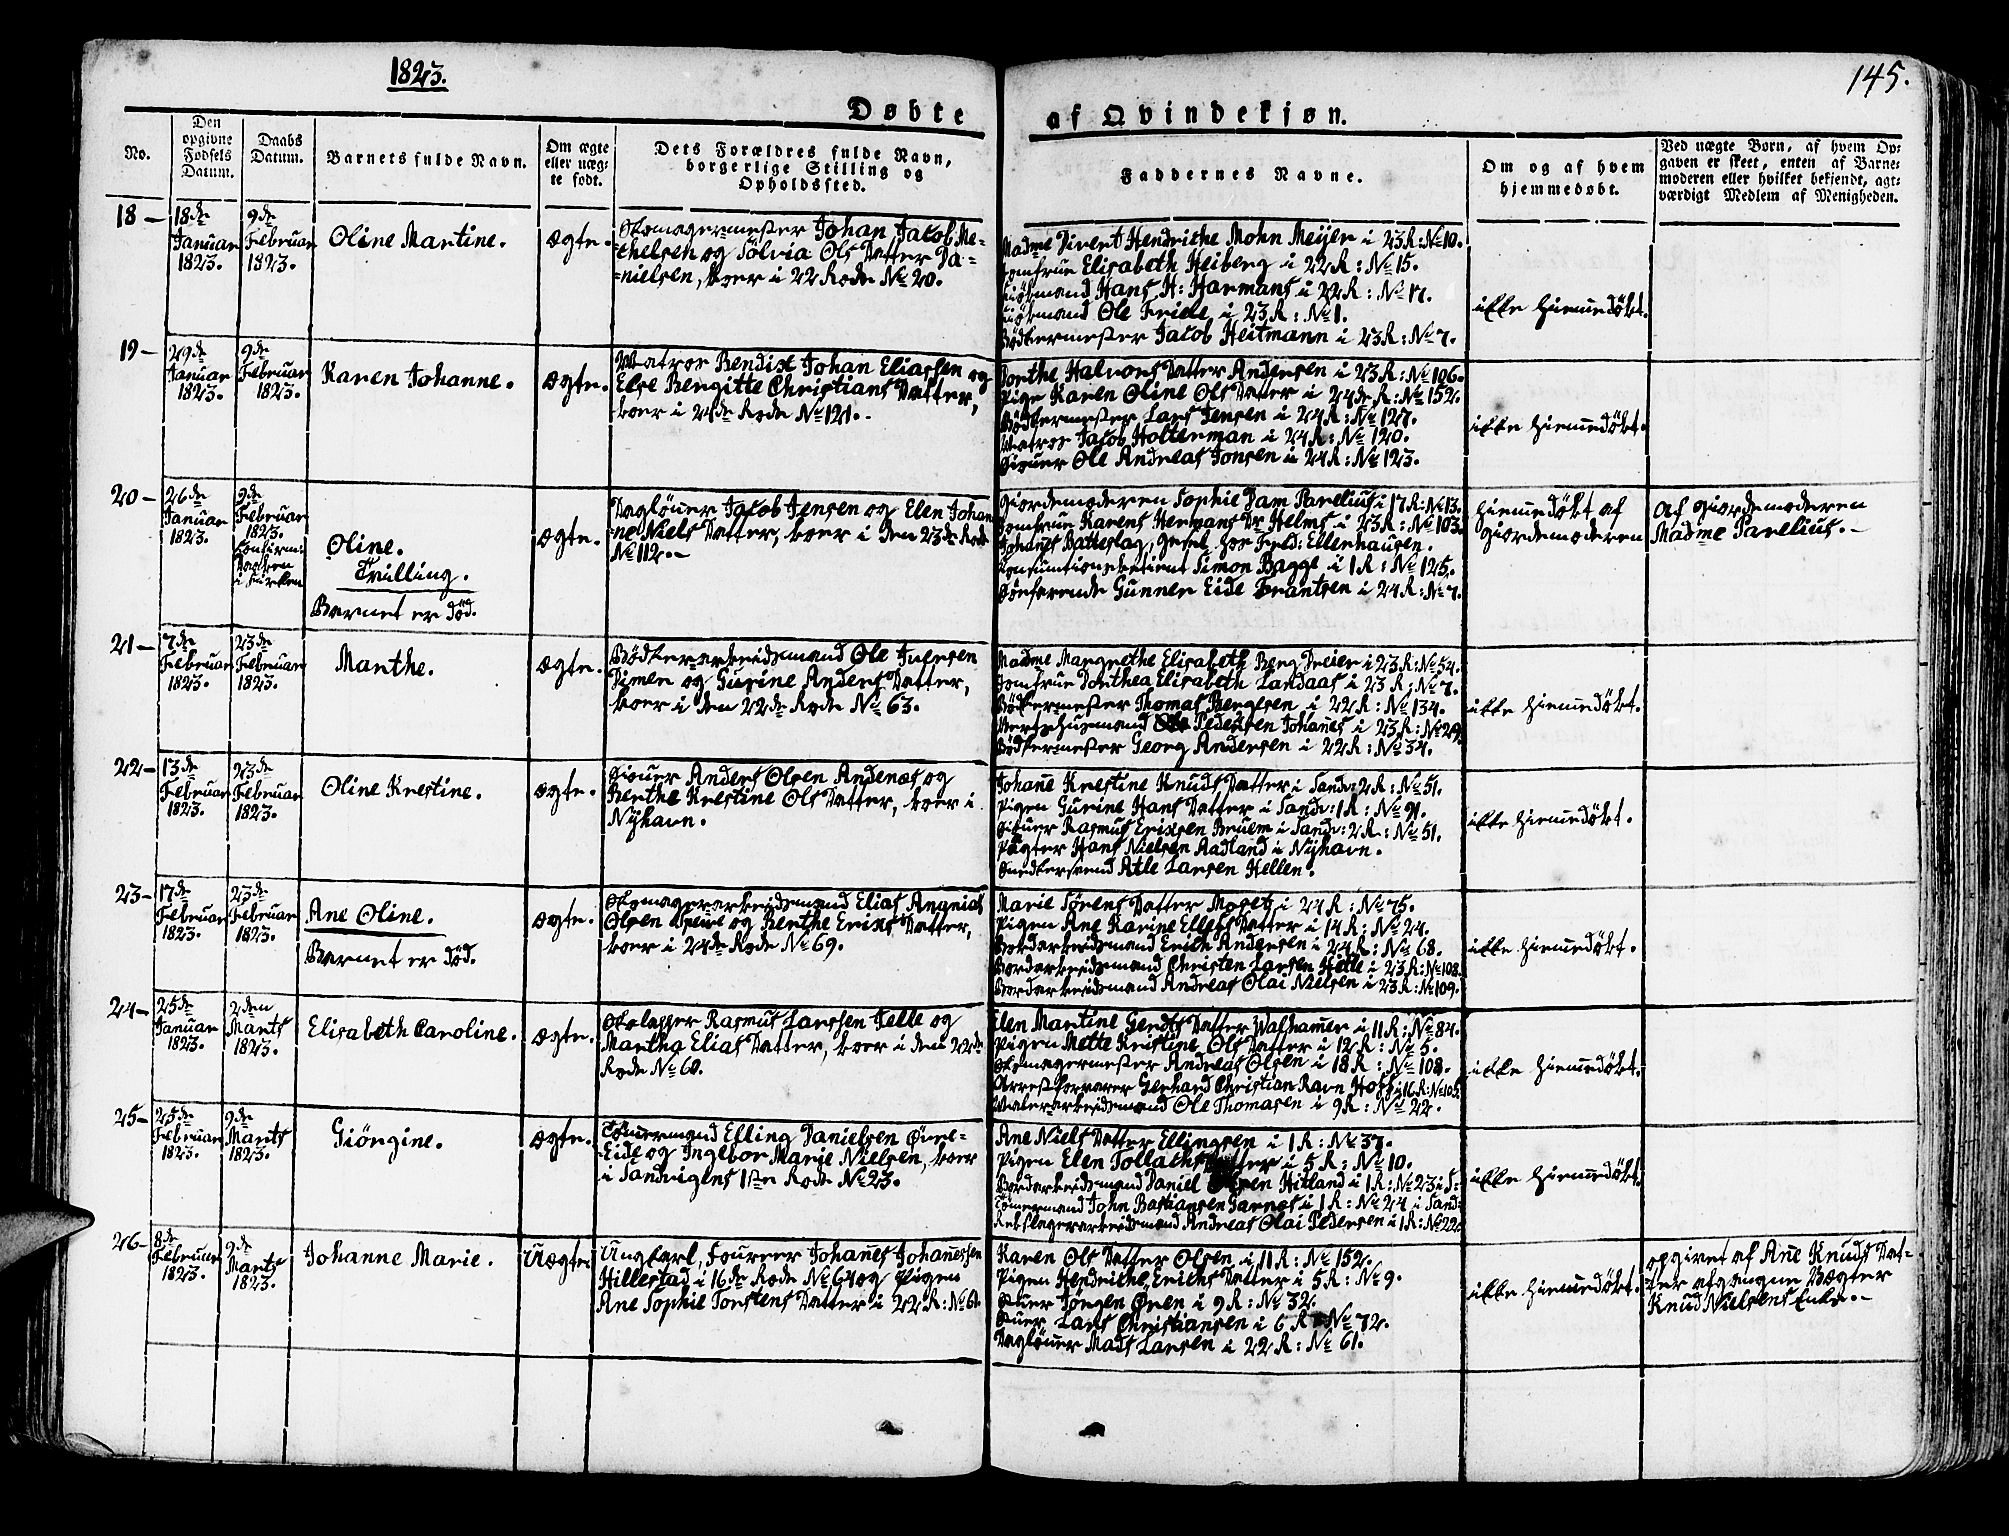 1823.
145.
Døbte
af Qvindekjøn.
No.
Den opgivne Fødsels Datum.
Daabs Datum.
Barnets fulde Navn.
Om ægte eller uægte født.
Dets Forældres fulde Navn, borgerlige Stilling og Opholdssted.
Faddernes Navne.
Om og af hvem hjemmedøbt.
Ved uægte Børn, af hvem Op-
gaven er skeet, enten af Barne-
moderen eller hvilket bekjendt, agt-
værdigt Medlem af Menigheden.
18 –
18de
Januar
1823.
9de
Februar
1823.
Oline Martine.
Ægte.
Skomagermester Johan Jacob Me-
chelsen og Sölvia Ols Datter Da-
nielsen, boer i 22 Rode No 20.
Madme Divert Hendriche Mohn Meijer i 23 R: No 10.
Jomfrue Elisabeth Heiberg i 22 R: No 15.
Kiöbmand Hans H: Harmans i 22 R: No 17.
Kiöbmand Ole Friele i 23 R: No 1.
Bödkermester Jacob Heitmann i 23 R: No 7.
ikke hiemmedöbt.
19 –
29de
Januar
1823.
9de
Februar
1823.
Karen Johanne.
Ægte.
Matros Bendix Johan Eliassen og
Else Bergitte Christians Datter,
boer i 24de Rode No 121.
Dorthe Halvors Datter Andersen i 23 R: No 106.
Pige Karen Oline Ols Datter i 24de R: No 152.
Bödkermester Lars Jensen i 24 R: No 127.
Matros Jacob Holterman i 24 R: No 120.
Ole Andreas Jonsen i 24 R: No 123.
ikke hiemmedöbt.
20 –
26de
Januar
1823.
9de
Februar
1823.
Confirm:
Daaben
i Kirken
Oline.
Trilling.
Barnet er död.
Ægte.
Daglöner Jacob Jensen og Elen Johan-
ne Niels Datter, boer i den 23de Rode
No 112.–
Giordemoderen Sophie Dam Parelius i 17 R: No 13.
Jomfrue Karens Hermans Dr Helms i 23 R: No 103.
Johanes Batteslag, Gesel hos Fred: Ellerhausen.
Consumtionsbetient Simon Bagge i 1 R: No 125.
Sönfarende Gunner Eide Frantsen i 24 R: No 7.
hiemmedöbt af
giordemoderen
Af giordemoderen
Madme Parelius.–
21 –
7de
Februar
1823.
23de
Februar
1823.
Marthe.
Ægte.
Bödkerarbeidsmand Ole Iversen
Dimen og Gurine Anders Datter,
boer i den 22de Rode No 63.
Madme Margrethe Elisabeth Berg Dreier i 23 R: No 54.
Jomfrue Dorthea Elisabeth Landaas i 23 R: No 7.
Bödkermester Thomas Bergesen i 22 R: No 134.
Pedersen Johanes i 23 R: No 29.
Bödkermester Georg Andersen i 22 R: No 34.
ikke hiemmedöbt.
22 –
13de
Februar
1823.
23de
Februar
1823.
Oline Krestine.
Ægte.
Anders Olsen Andenæs og
Berthe Krestine Ols Datter, boer i
Nyhavn.
Johanne Krestine Knuds Datter i Sandv: 2 R: No 51.
Pigen Gurine Hans Datter i Sandv: 1 R: No 91.
Rasmus Erixsen Bruem i Sandv: 2 R: No 51.
Pagter Hans Nielsen Aadland i Nyhavn.
Snedkersvend Atle Larsen Hellen.
ikke hiemmedöbt.
23 –
17de
Februar
1823.
23de
Februar
1823.
Ane Oline.
Barnet er död.
Ægte.
Skomagerarbeidsmand Elias Ananias
Olsen og Berthe Erixs Datter,
boer i 24de Rode No 69.
Marie Sörens Datter Mogetz i 24 R: No 75.
Pigen Ane Karine Ellefs Datter i 14 R: No 24.
Bordarbeidsmand Erich Andersen i 24 R: No 68.
Bordarbeidsmand Christen Larsen Hetle i 23 R: No 108.
Bordarbeidsmand Andreas Olai Nielsen i 23 R: No 109.
ikke hiemmedöbt.
24 –
25de
Januar
1823.
2den
Marts
1823.
Elisabeth Caroline.
Ægte.
Skolapper Rasmus Larssen Jelle og
Martha Elias Datter, boer i den 22de
Rode No 60.
Elen Martine Gerdts Datter Walhamer i 11 R: No 84.
Pigen Mette Kristine Ols Datter i 12 R: No 5.
Skomagermester Andreas Olsen i 18 R: No 108.
Arrestforvarer Gerhard Christian Ravn Hoff i 16 R: No 105.
Malerarbeidsmand Ole Thomasen i 9 R: No 22.
ikke hiemmedöbt.
25 –
25de
Februar
1823.
9de
Marts
1823.
Giörgine.
Ægte.
Tömermand Elling Danielsen Övre-
Eide og Ingebor Marie Nielsen, boer
i Sandvigens 1ste Rode No 23.
Ane Niels Datter Ellingsen i 1 R: No 37.
Pigen Elen Tollachs Datter i 5 R: No 10.
Bordarbeidsmand Daniel Hitland i 1 R: No 23 i S:
Tömermand John Bastiansen Garnes i 1 R: No 24 i Sand:
Rebslagerarbeidsmand Andreas Olai Pedersen i 1 R: No 22.
ikke hiemmedöbt.
26 –
8de
Februar
1823.
2de
Marts
1823.
Johanne Marie.
Uægte.
Ungkarl, Fourer Johanes Johanessen
Hillestad i 16de Rode No 64 og Pigen
Ane Sophie Torstens Datter i 22 R: No 61.
Karen Ols Datter Olsen i 11 R: No 152.
Pigen Hendriche Erichs Datter i 5 R: No 9.
Jörgen Ören i 9 R: No 32.
Lars Christiansen i 6 R No 72.
Daglöner Mads Larsen i 22 R: No 61.
ikke hiemmedöbt.
opgivet af Ane Knuds Dat-
ter afgangne Vægter
Knud Nielsens Enke.–